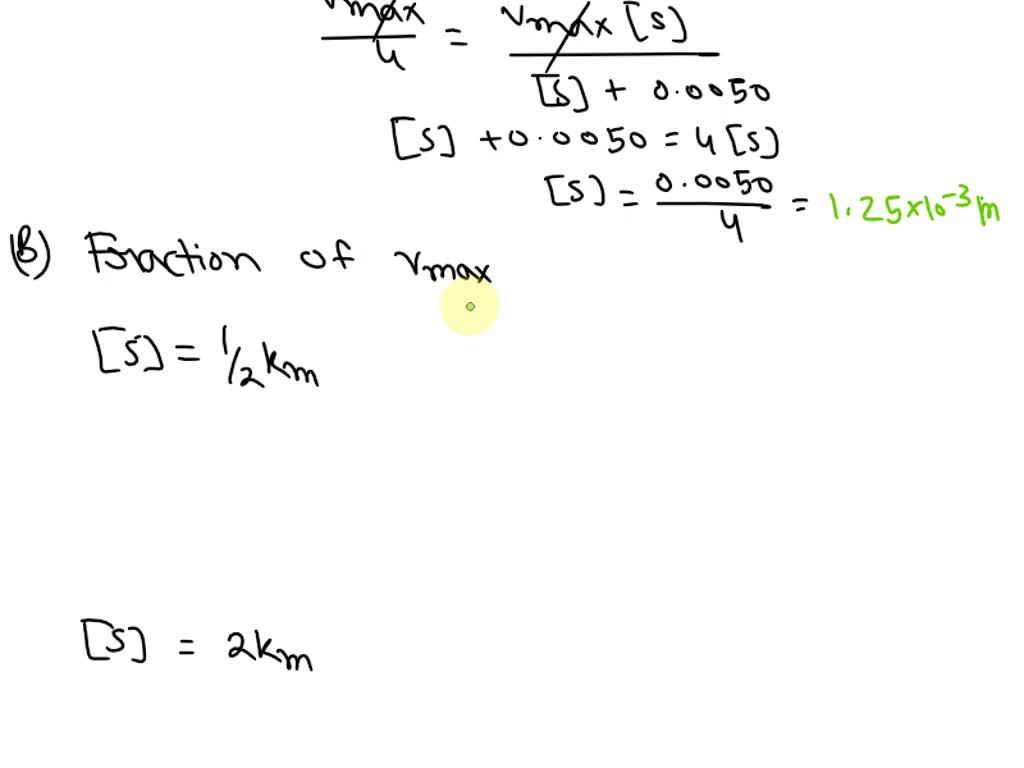 Vmax/4 = Vmax [S]/[S] + 0.0050
[S] + 0.0050 = 4 [S]
[S] = 0.0050/4 = 1.25×10⁻³ m
(B) Foraction of Vmax
[S] = 1/2 km
[S] = 2km